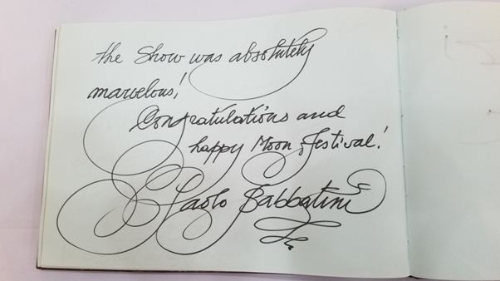 the Show was absolutely
marvelous!
Congratulations and
happy Moon festival!
Paolo Sabbatini